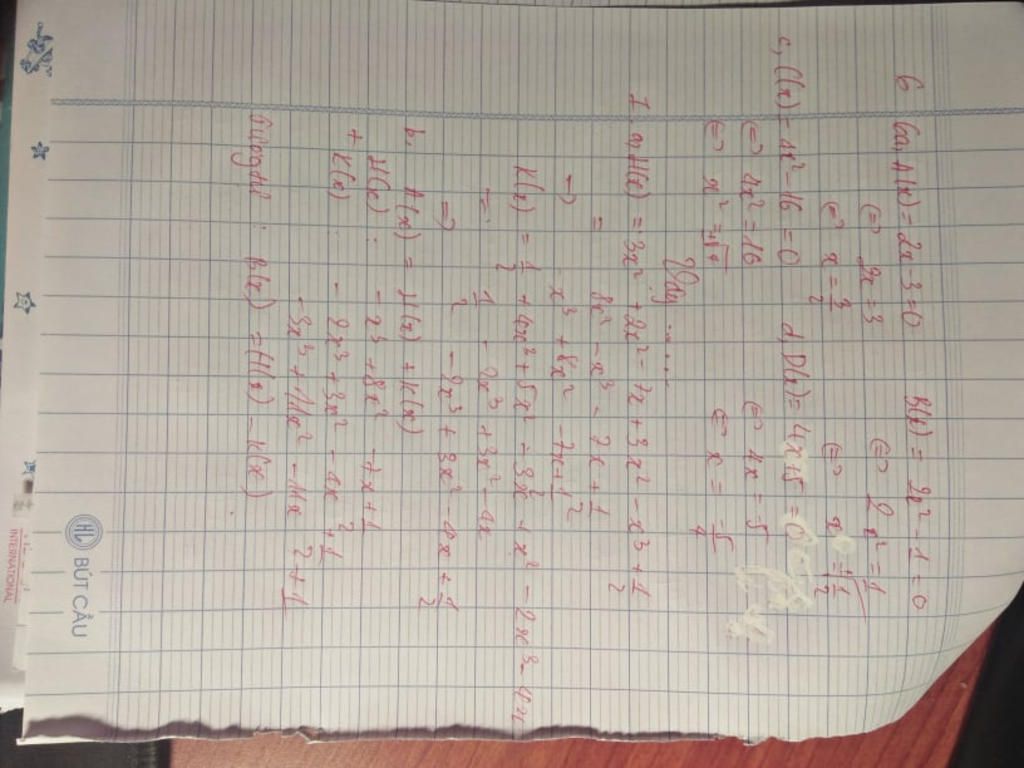 6 6a, A(x) = 2x - 3 = 0 B(x) = 2x² - 1 = 0
⇔ 2x = 3 ⇔ 2x² = 1
⇔ x = 3/2 ⇔
c, C(x) = 4x² - 16 = 0 d, D(x) = 4x + 5 = 0
⇔ 4x² = 16 ⇔ 4x = -5
⇔ x² = ⇔ x = -5/4
Vậy ......
1. a, H(x) = 3x² + 2x² - 7x + 3x² - x³ + 1/2
= 8x² - x³ - 7x + 1/2
=> -x³ + 8x² - 7x + 1/2
K(x) = 1/2 + 4x³ + 5x² - 3x² + x² - 2x³ - 4x
= 1/2 - 2x³ + 3x² - 4x
=> -2x³ + 3x² - 4x + 1/2
b. A(x) = H(x) + K(x)
H(x) : -x³ + 8x² - 7x + 1/2
+ K(x) - 2x³ + 3x² - 4x + 1/2
- 3x³ + 11x² - 11x + 1
B(x) = H(x) - K(x)
HL BÚT CẦU
INTERNATIONAL